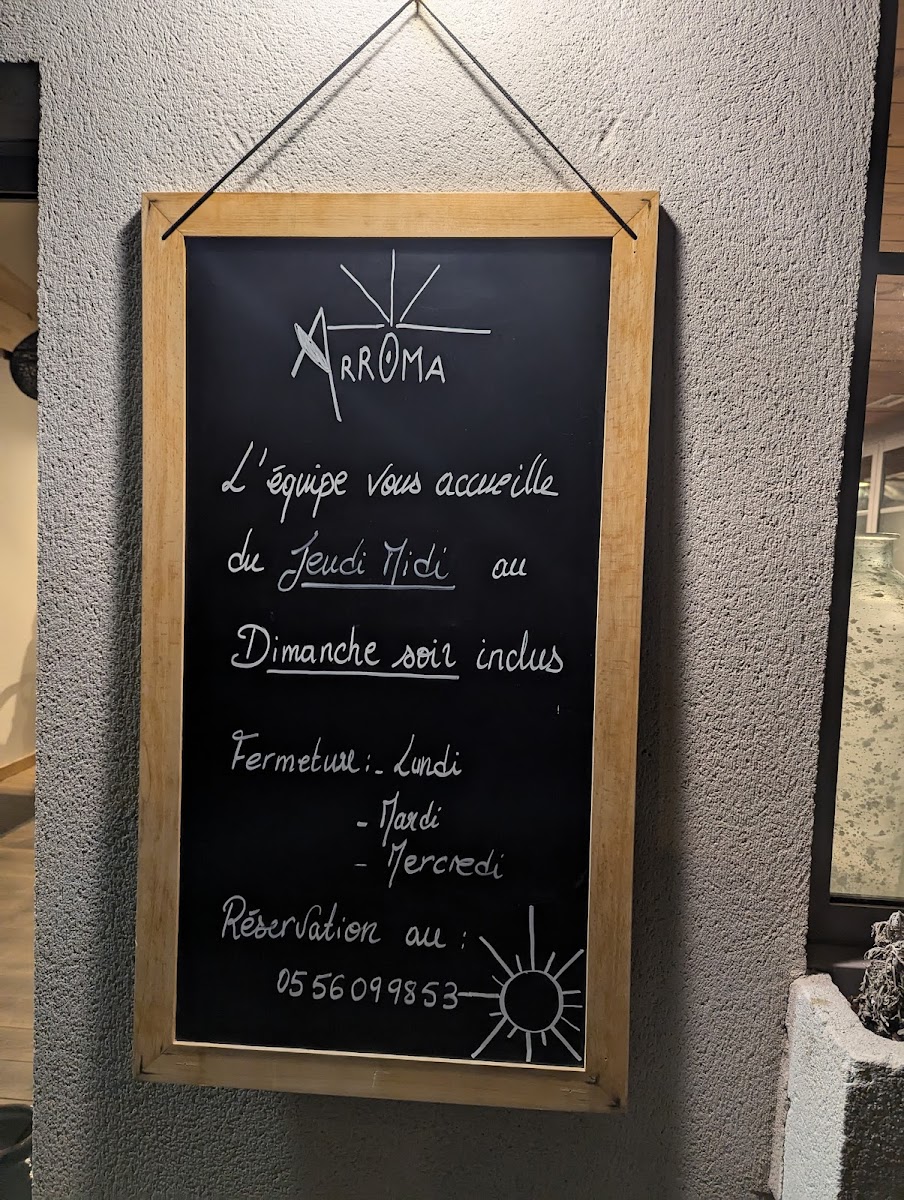 ARROMA
L'équipe vous accueille
du Jeudi Midi au
Dimanche soir inclus
Fermeture : - Lundi
- Mardi
- Mercredi
Réservation au :
05 56 09 98 53